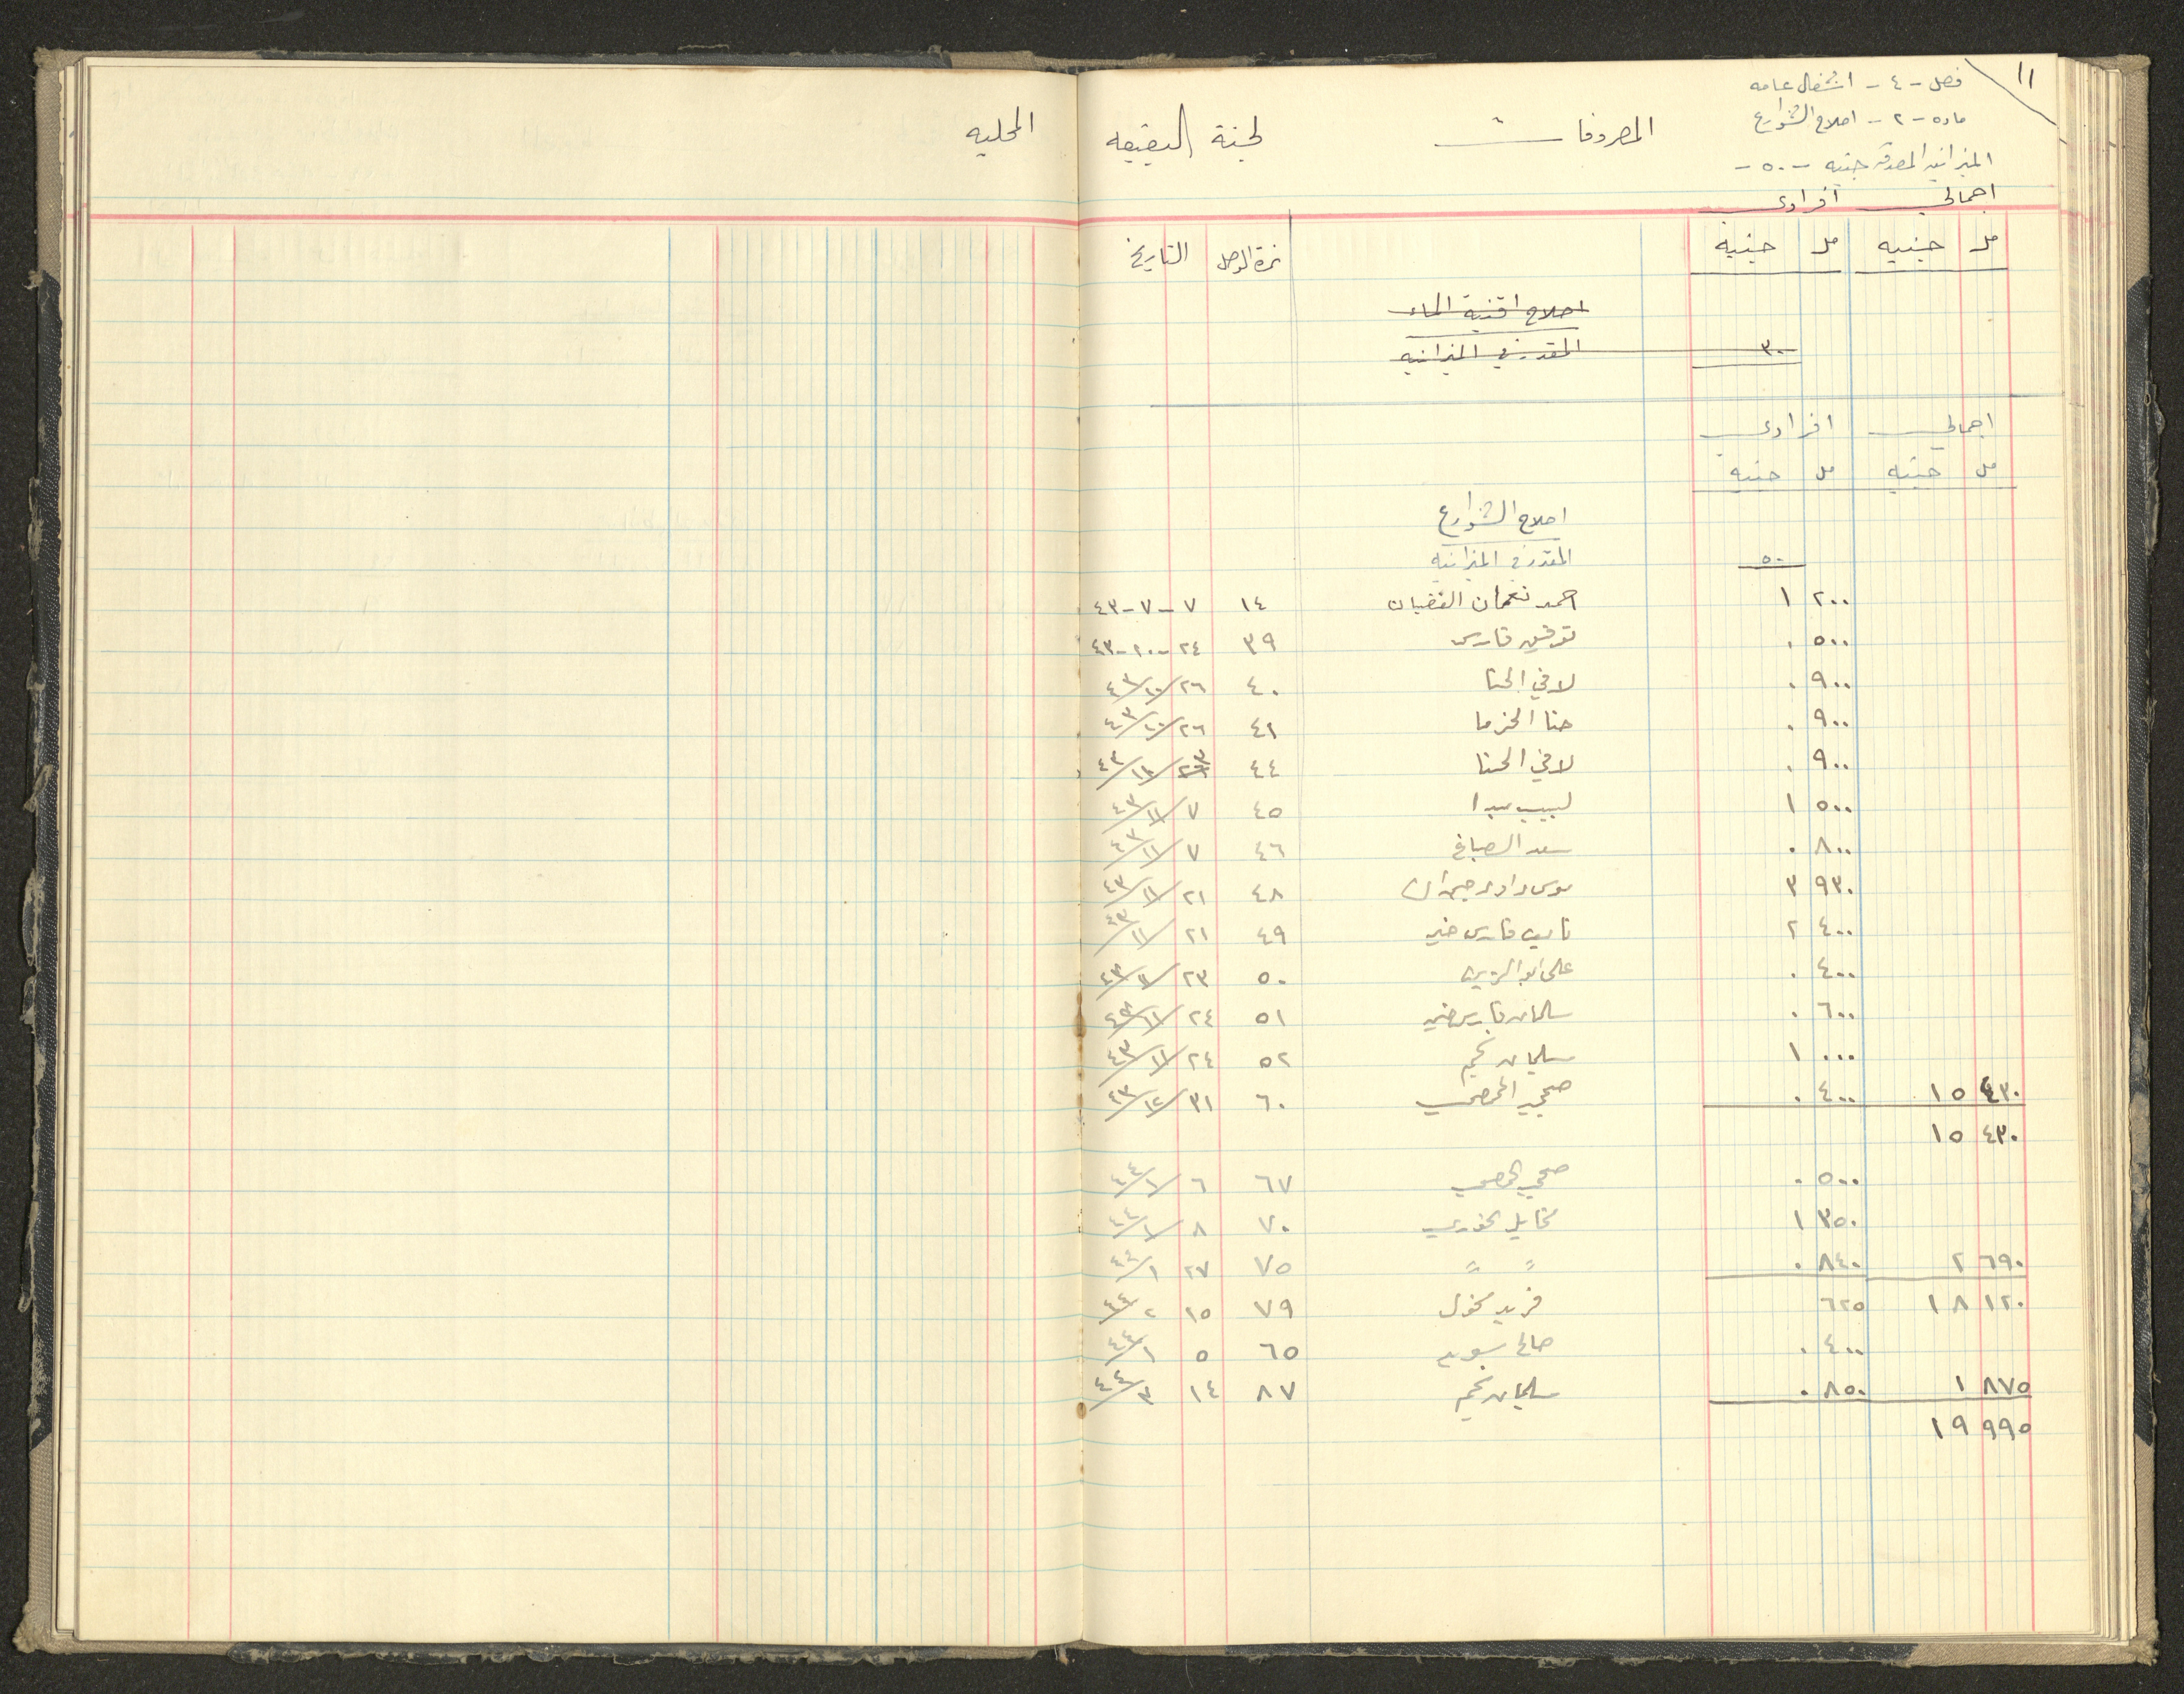 ١١
فصل - ٤ - اشغال عامه
ماده - ٢ - اصلاح الشوارع
الميزانيه المصدقه جنيه - ٥٠ -
المصروفات لجنة البقيعه المحليه
اجمالي افرادي
مل جنيه مل جنيه نمرة الوصل التاريخ
اصلاح اقنية الماء
٣٠ المقدر في الميزانيه
اجمالي افرادي
مل جنيه مل جنيه
اصلاح الشوارع
٥٠ المقدر في الميزانيه
٢٠٠ ١ احمد نعمان الغضبان ١٤ ٧-٧-٤٣
٥٠٠ ٠ توفيق فارس ٣٩ ٢٤-١٠-٤٣
٩٠٠ ٠ لافي الحنا ٤٠ ٢٦/١٠/٤٣
٩٠٠ ٠ حنا الخزما ٤١ ٢٦/١٠/٤٣
٩٠٠ ٠ لافي الحنا ٤٤ /٤٣
٥٠٠ ١ لبيب ٤٥ ٧/١١/٤٣
٨٠٠ ٠ سعد الصباغ ٤٦ ٧/١١/٤٣
٩٣٠ ٣ موسى داود جبران ٤٨ ٢١/١١/٤٣
٤٠٠ ٢ نايف فارس خير ٤٩ ٢١/١١/٤٣
٤٠٠ ٠ على ابو الزين ٥٠ ٢٣/١١/٤٣
٦٠٠ ٠ سلمان فارس خير ٥١ ٢٤/١١/٤٣
٠٠٠ ١ سليمان نجم ٥٢ ٢٤/١١/٤٣
٤٣٠ ١٥ ٤٠٠ ٠ صبحي الحمصي ٦٠ ٣١/١٢/٤٣
٤٣٠ ١٥
٥٠٠ ٠ صبحي الحمصي ٦٧ ٦/١/٤٤
٣٥٠ ١ مخايل الخوري ٧٠ ٨/١/٤٤
٦٩٠ ٢ ٨٤٠ ٠ " " ٧٥ ٢٧/١/٤٤
١٢٠ ١٨ ٦٢٥ فريد مخول ٧٩ ١٥/٢/٤٤
٤٠٠ ٠ صالح سويد ٦٥ ٥/١/٤٤
٨٧٥ ١ ٨٥٠ ٠ سليمان نجم ٨٧ ١٤/٣/٤٤
٩٩٥ ١٩